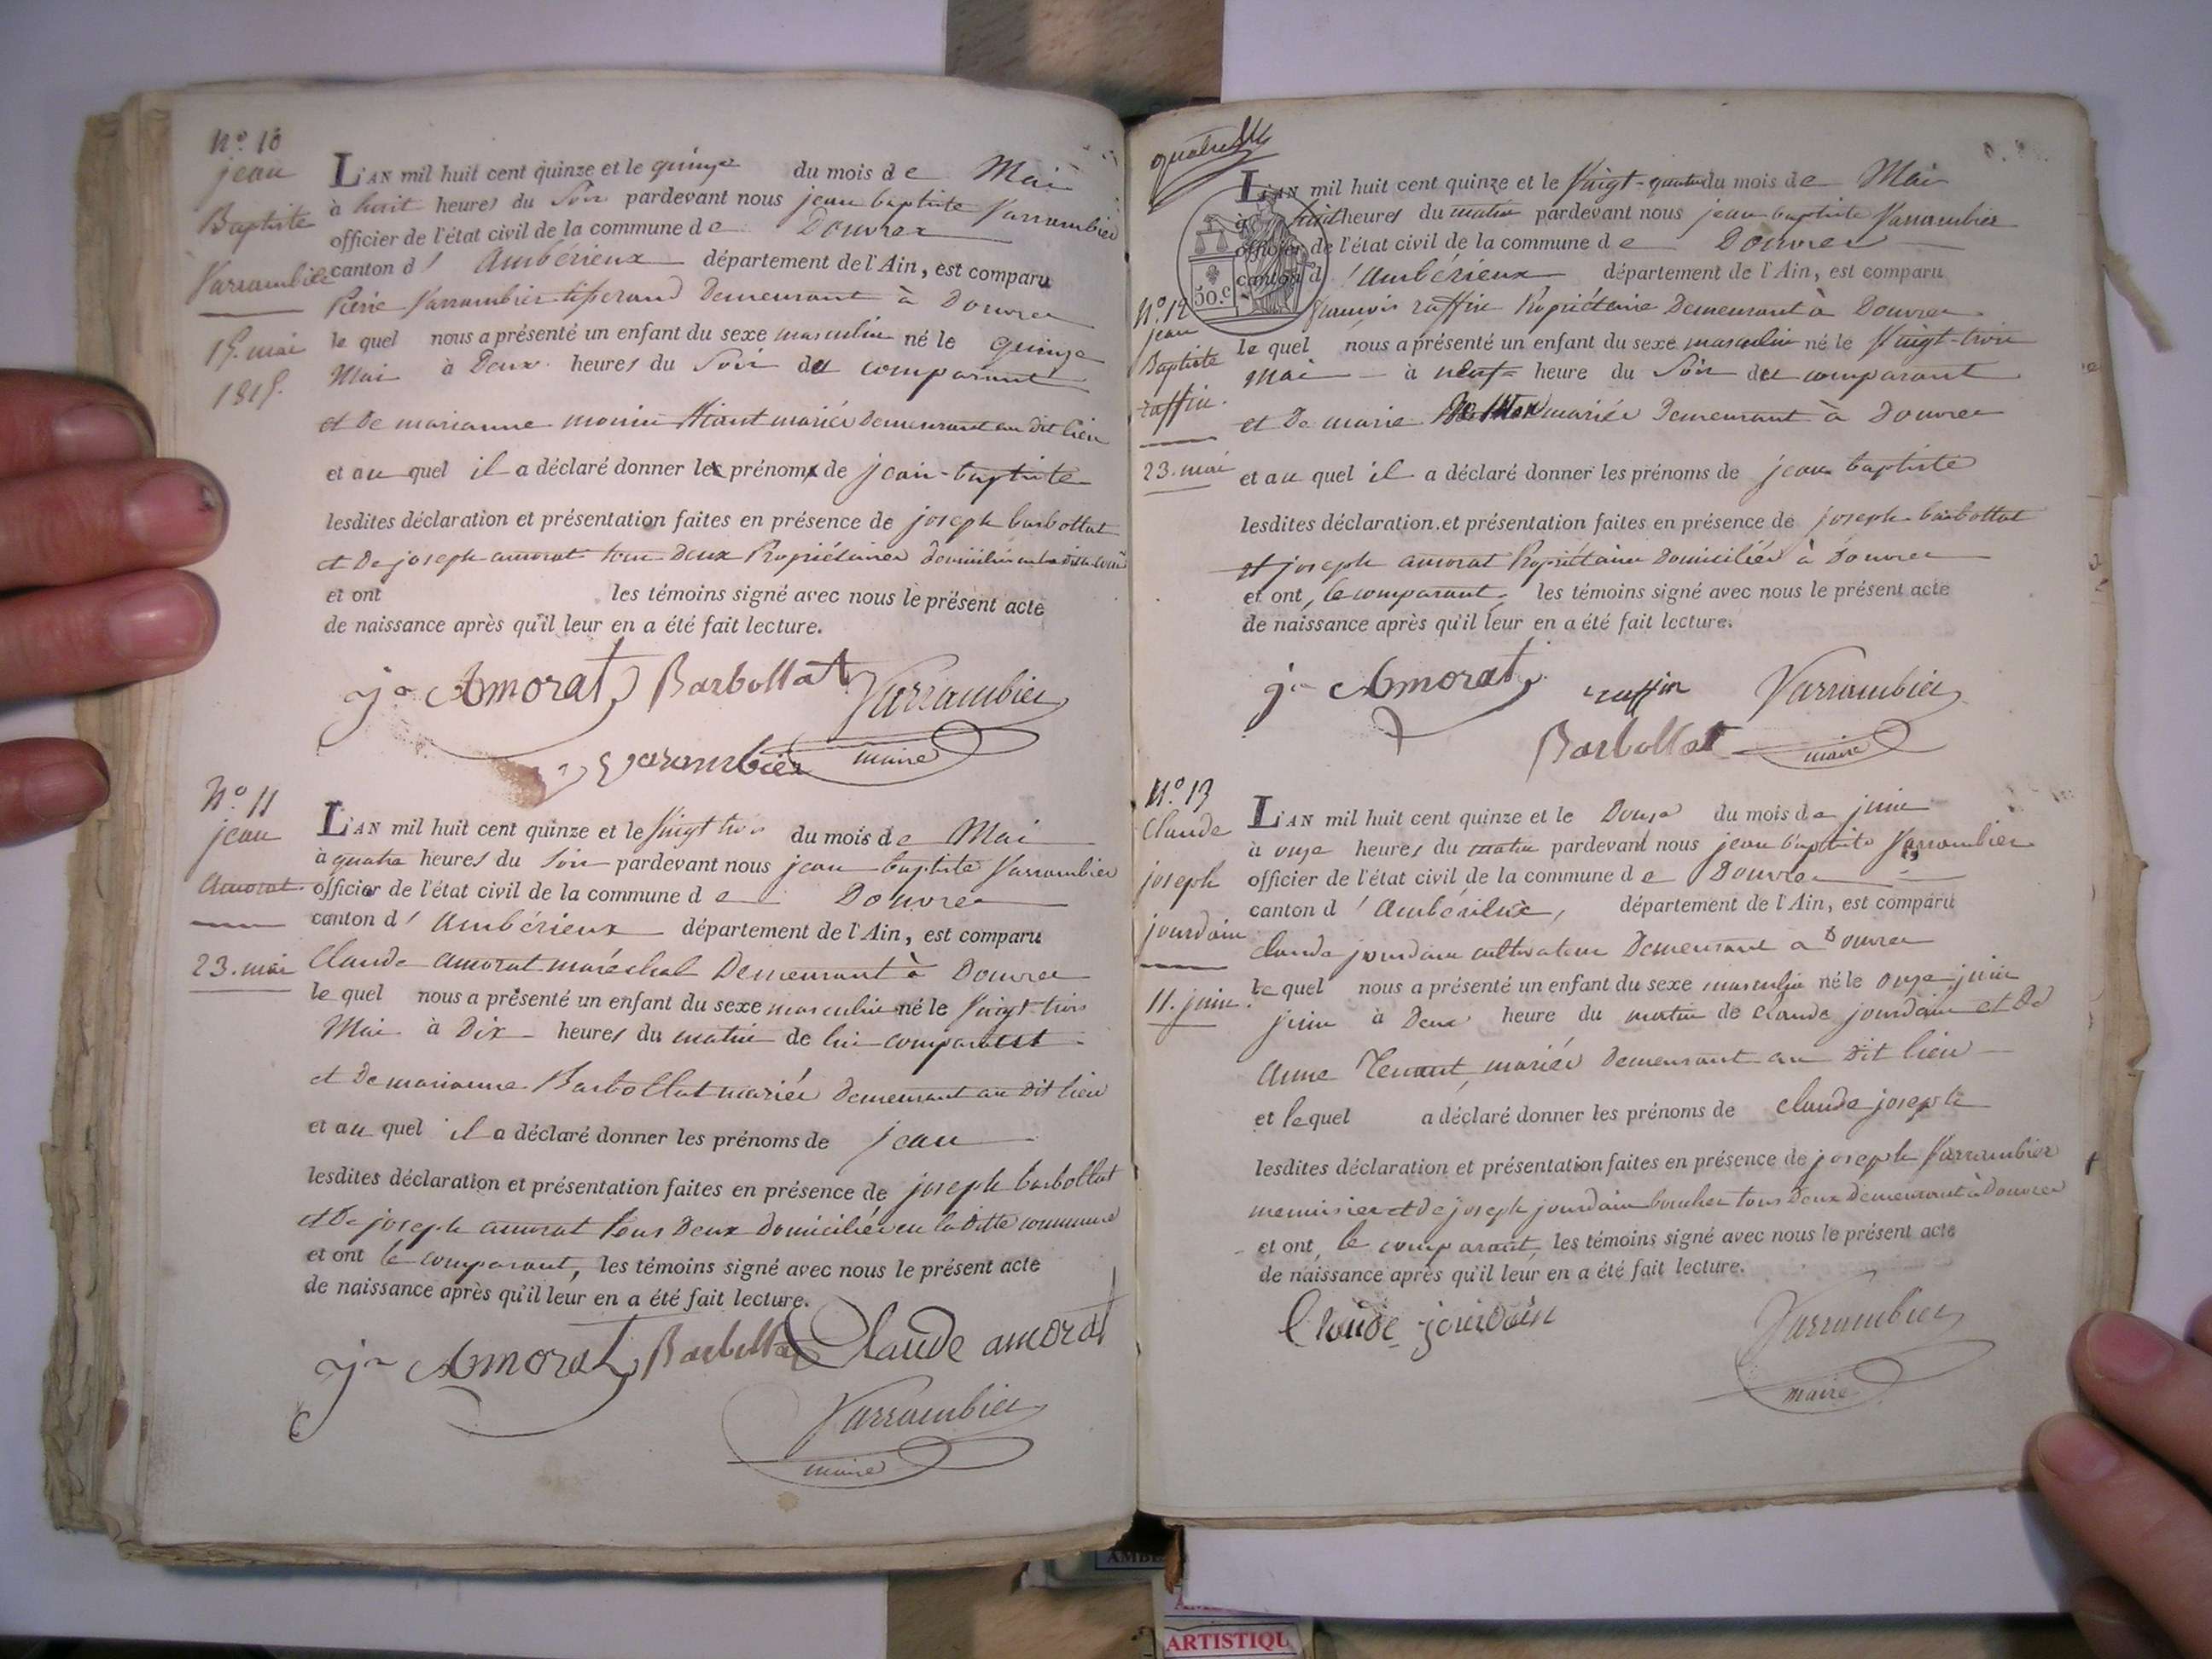 N.o 10
jean
Baptiste
Varrambier
15. mai
1815.
L'AN mil huit cent quinze et le quinze du mois de Mai
à huit heures du Soir pardevant nous jean baptiste Varrambier
officier de l'état civil de la commune de Douvres
canton d' Ambérieux département de l'Ain, est comparu
Pierre Varrambier tisserand Demeurant à Douvres
le quel nous a présenté un enfant du sexe masculin né le quinze
Mai à Deux heures du Soir du comparant
et De marianne monin mariés Demeurant au dit lieu
et au quel il a déclaré donner les prénoms de jean-baptiste
lesdites déclaration et présentation faites en présence de joseph barbollat
et De joseph amorat tous Deux Propriétaires domiciliés
et ont les témoins signé avec nous le présent acte
de naissance après qu'il leur en a été fait lecture.
jh Amorat Barbollat Varrambier
Varambier maire
N.o 11
jean
Amorat
23. mai
L'AN mil huit cent quinze et le Vingt trois du mois de Mai
à quatre heures du Soir pardevant nous jean baptiste Varrambier
officier de l'état civil de la commune de Douvres
canton d' Ambérieux département de l'Ain, est comparu
Claude amorat maréchal Demeurant à Douvres
le quel nous a présenté un enfant du sexe masculin né le Vingt-trois
Mai à Dix heures du matin de lui comparant
et De marianne Barbollat mariés Demeurant au Dit lieu
et au quel il a déclaré donner les prénoms de jean
lesdites déclaration et présentation faites en présence de joseph barbollat
et De joseph amorat tous Deux domiciliés en la ditte commune
et ont le comparant, les témoins signé avec nous le présent acte
de naissance après qu'il leur en a été fait lecture.
jh Amorat Barbollat Claude amorat
Varrambier
maire
50.c
N.o 12
jean
Baptiste
raffin.
23. mai
L'AN mil huit cent quinze et le Vingt-quatre du mois de Mai
à huit heures du matin pardevant nous jean baptiste Varrambier
officier de l'état civil de la commune de Douvres
canton d' Ambérieux département de l'Ain, est comparu
françois raffin Propriétaire Demeurant à Douvres
le quel nous a présenté un enfant du sexe masculin né le Vingt-trois
Mai à neuf heure du Soir du comparant
et De marie mariés Demeurant à Douvres
et au quel il a déclaré donner les prénoms de jean baptiste
lesdites déclaration et présentation faites en présence de joseph barbollat
et joseph amorat Propriétaires Domiciliés à Douvres
et ont, le comparant, les témoins signé avec nous le présent acte
de naissance après qu'il leur en a été fait lecture.
jh Amorat raffin Varrambier
Barbollat maire
N.o 13
Claude
joseph
jourdain
11. juin.
L'AN mil huit cent quinze et le Douze du mois de juin
à onze heures du matin pardevant nous jean baptiste Varrambier
officier de l'état civil de la commune de Douvres
canton d' Ambérieux, département de l'Ain, est comparu
Claude jourdain cultivateur Demeurant a Douvres
le quel nous a présenté un enfant du sexe masculin né le onze juin
juin à Deux heure du matin de Claude jourdain et De
Anne Tenant, mariés Demeurant au Dit lieu
et lequel a déclaré donner les prénoms de claude joseph
lesdites déclaration et présentation faites en présence de joseph Varrambier
menuisier et De joseph jourdain boucher tous Deux Demeurant à Douvres
et ont, le comparant, les témoins signé avec nous le présent acte
de naissance après qu'il leur en a été fait lecture.
Claude jourdain Varrambier
maire
ARTISTIQU